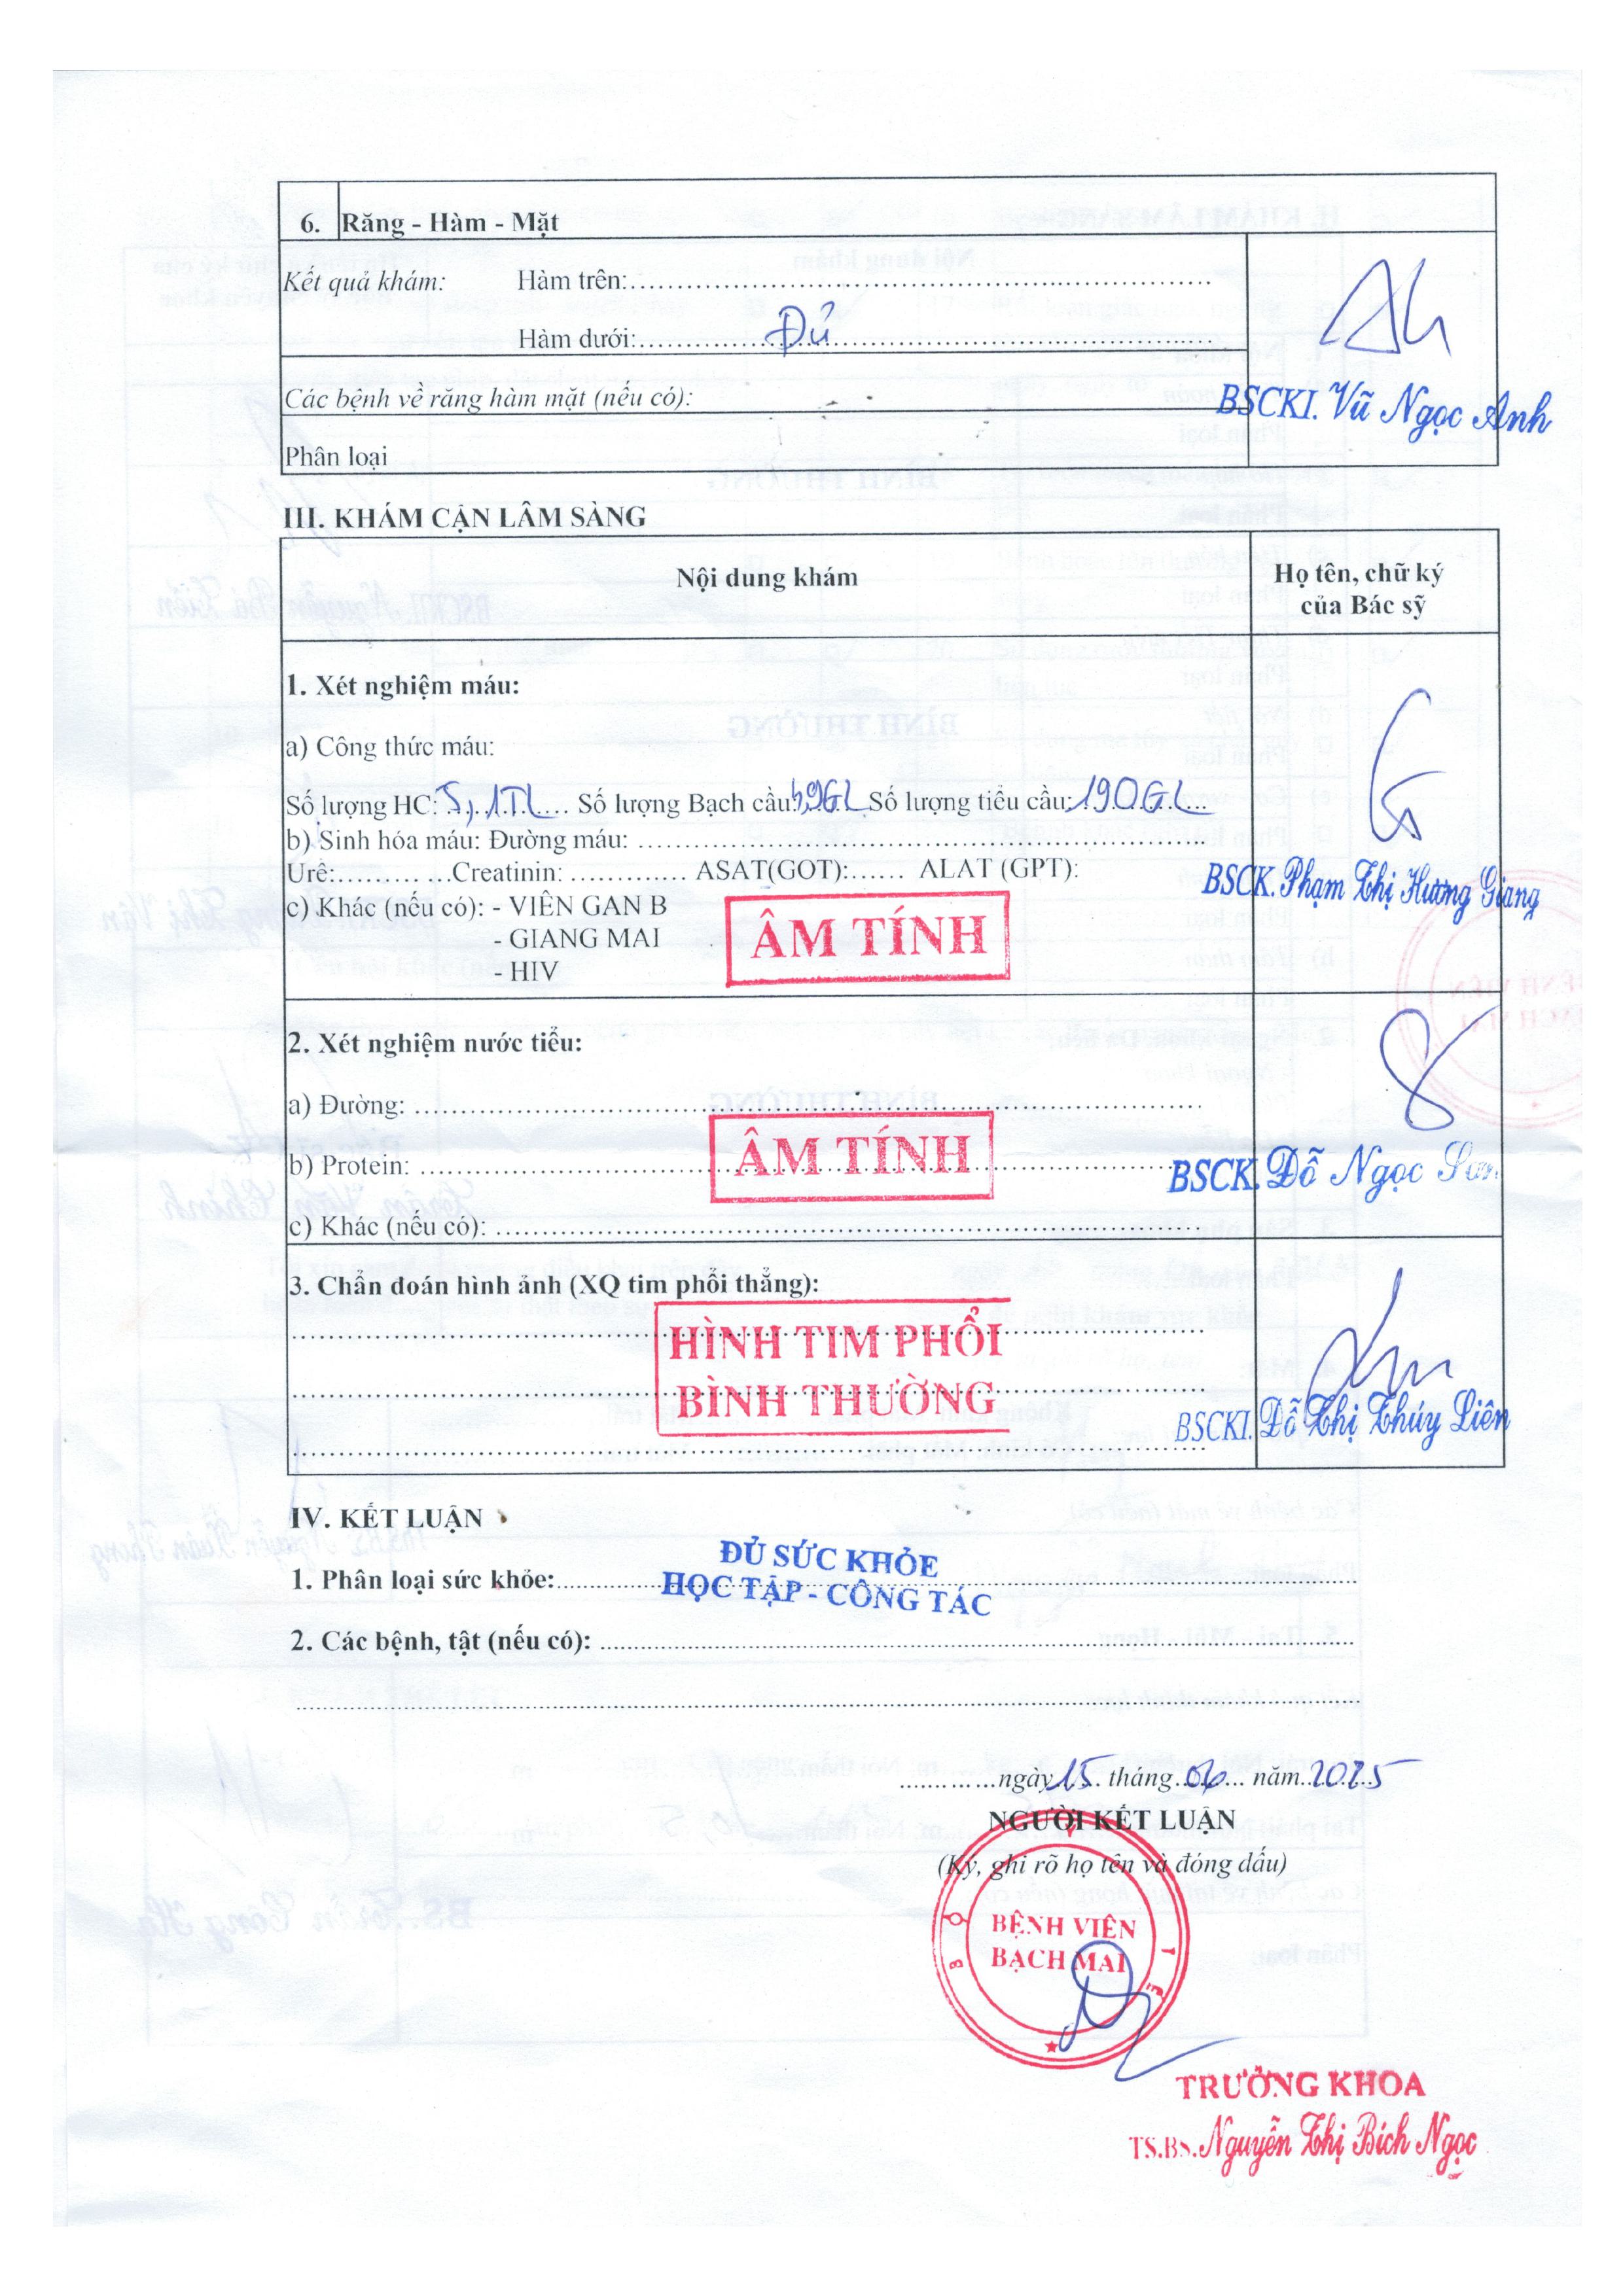 6. Răng - Hàm - Mặt
Kết quả khám: Hàm trên:
Hàm dưới: Đủ
Các bệnh về răng hàm mặt (nếu có):
BSCKI. Vũ Ngọc Anh
Phân loại
III. KHÁM CẬN LÂM SÀNG
Nội dung khám
Họ tên, chữ ký
của Bác sỹ
1. Xét nghiệm máu:
a) Công thức máu:
Số lượng HC: 5,1TL Số lượng Bạch cầu: GL Số lượng tiểu cầu: 190GL
b) Sinh hóa máu: Đường máu:
Urê: Creatinin: ASAT(GOT): ALAT (GPT):
BSCK. Phạm Thị Hương Giang
c) Khác (nếu có): - VIÊN GAN B
- GIANG MAI
- HIV
ÂM TÍNH
2. Xét nghiệm nước tiểu:
a) Đường:
b) Protein:
ÂM TÍNH
BSCK. Đỗ Ngọc
c) Khác (nếu có):
3. Chẩn đoán hình ảnh (XQ tim phổi thẳng):
HÌNH TIM PHỔI
BÌNH THƯỜNG
BSCKI. Đỗ Thị Thúy Liên
IV. KẾT LUẬN
ĐỦ SỨC KHỎE
1. Phân loại sức khỏe:
HỌC TẬP - CÔNG TÁC
2. Các bệnh, tật (nếu có):
ngày 15 tháng 06 năm 2025
NGƯỜI KẾT LUẬN
(Ký, ghi rõ họ tên và đóng dấu)
BỆNH VIỆN
BẠCH MAI
BỘ Y TẾ
TRƯỞNG KHOA
TS.BS. Nguyễn Thị Bích Ngọc